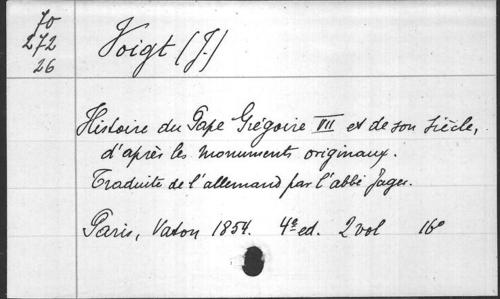 70
272
26
Voigt (J.)
Histoire du Pape Grégoire VII et de son siècle,
d'après les monuments originaux.
Traduite de l'allemand par l'abbé Jager.
Paris, Vaton 1854. 4e ed. 2 vol 16º